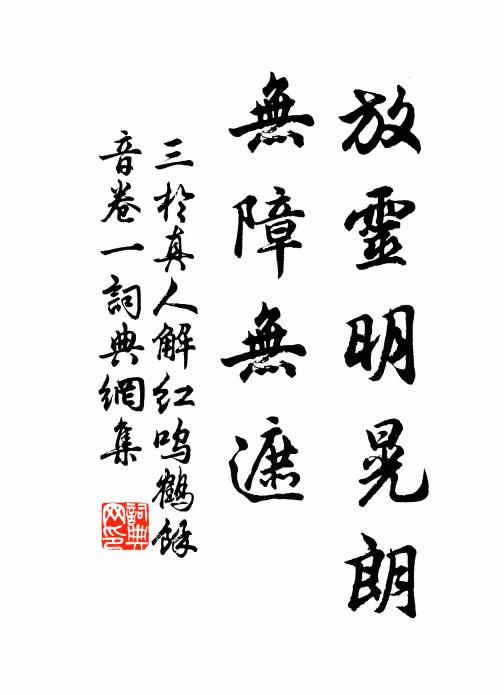 放靈明晃朗
無障無遮
三於真人解紅鳴鶴餘
音卷一詞典網集
詞典
网印